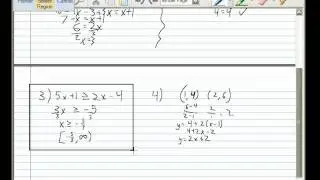 7 - x = x + 1
6 = 2x
x = 3
4 = 4 ✓
3) 5x+1 ≥ 2x-4
x ≥ -5/3
[-5/3, ∞)
4) (1,4) (2,6)
6-4/2-1 2/1 = 2
y = 4 + 2(x-1)
4+2x-2
y = 2x+2